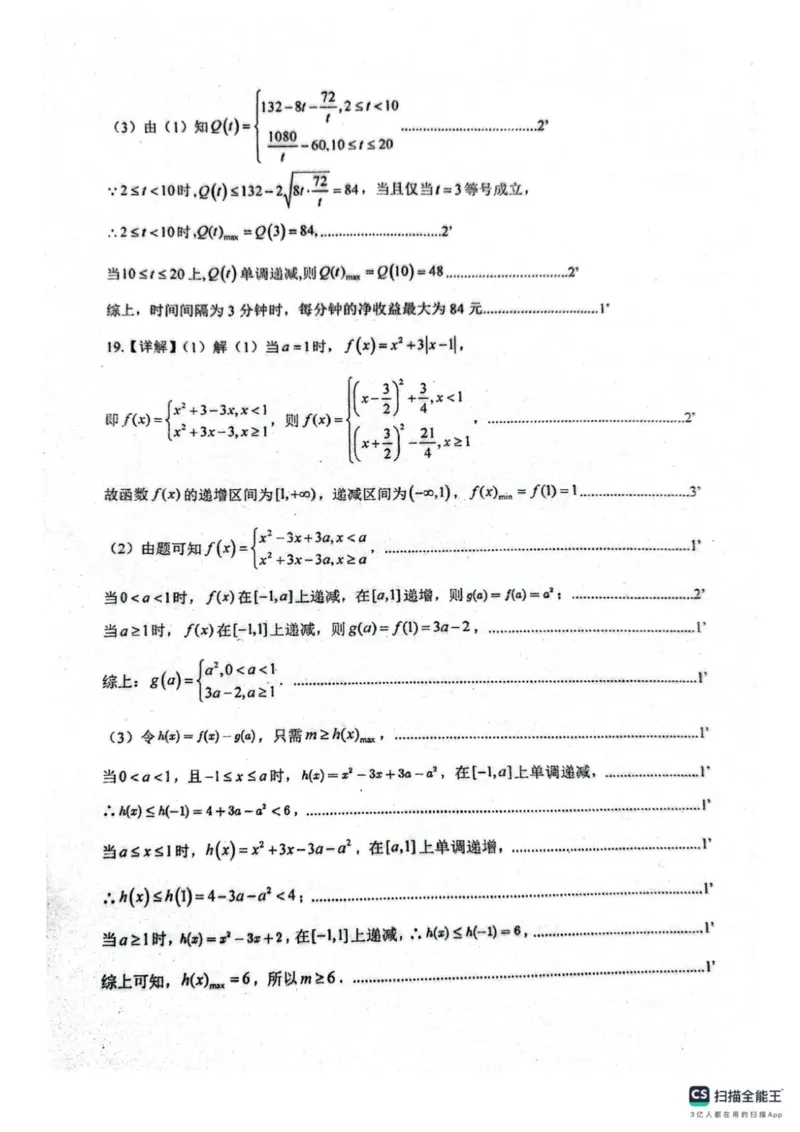 (3) 由 (1) 知Q(t)={132-8t-72/t,2≤t<10 ; 1080/t-60,10≤t≤20 ......2'
∵2≤t<10时,Q(t)≤132-2√(8t·72/t)=84，当且仅当t=3等号成立，
∴2≤t<10时,Q(t)max=Q(3)=84,......2'
当10≤t≤20上,Q(t)单调递减,则Q(t)max=Q(10)=48......2'
综上，时间间隔为 3 分钟时，每分钟的净收益最大为 84 元......1'
19.【详解】(1) 解 (1) 当a=1时，f(x)=x²+3|x-1|，
即f(x)={x²+3-3x,x<1 ; x²+3x-3,x≥1，则f(x)={(x-3/2)²+3/4,x<1 ; (x+3/2)²-21/4,x≥1，......2'
故函数f(x)的递增区间为[1,+∞)，递减区间为(-∞,1)，f(x)min=f(1)=1......3'
(2) 由题可知f(x)={x²-3x+3a,x<a ; x²+3x-3a,x≥a，......1'
当0<a<1时，f(x)在[-1,a]上递减，在[a,1]递增，则g(a)=f(a)=a²；......2'
当a≥1时，f(x)在[-1,1]上递减，则g(a)=f(1)=3a-2，......1'
综上：g(a)={a²,0<a<1 ; 3a-2,a≥1．......1'
(3) 令h(x)=f(x)-g(a)，只需m≥h(x)max，......1'
当0<a<1，且-1≤x≤a时，h(x)=x²-3x+3a-a²，在[-1,a]上单调递减，......1'
∴h(x)≤h(-1)=4+3a-a²<6，......1'
当a≤x≤1时，h(x)=x²+3x-3a-a²，在[a,1]上单调递增，......1'
∴h(x)≤h(1)=4-3a-a²<4；......1'
当a≥1时，h(x)=x²-3x+2,在[-1,1]上递减，∴h(x)≤h(-1)=6，......1'
综上可知，h(x)max=6，所以m≥6．......1'
CS 扫描全能王
3亿人都在用的扫描App